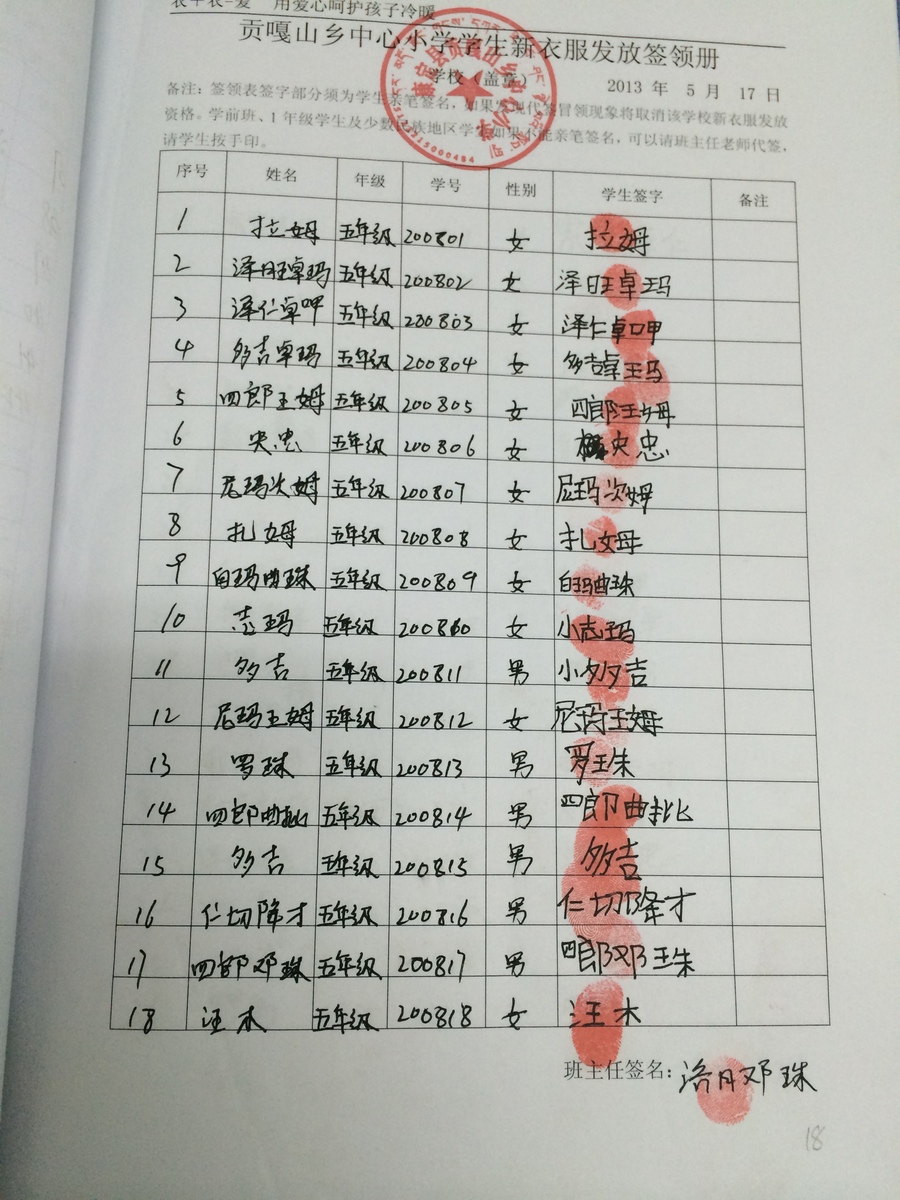 衣+衣=爱 用爱心呵护孩子冷暖
贡嘎山乡中心小学学生新衣服发放签领册
学校（盖章） 2013 年 5 月 17 日
备注：签领表签字部分须为学生亲笔签名，如果发现代签冒领现象将取消该学校新衣服发放
资格。学前班、1年级学生及少数民族地区学生如果不能亲笔签名，可以请班主任老师代签，
请学生按手印。
序号 姓名 年级 学号 性别 学生签字 备注
1 拉姆 五年级 200801 女 拉姆
2 泽旺卓玛 五年级 200802 女 泽旺卓玛
3 泽仁卓呷 五年级 200803 女 泽仁卓呷
4 多吉卓玛 五年级 200804 女 多吉卓玛
5 四郎王姆 五年级 200805 女 四郎王姆
6 央忠 五年级 200806 女 央忠
7 尼玛次姆 五年级 200807 女 尼玛次姆
8 扎姆 五年级 200808 女 扎姆
9 白玛曲珠 五年级 200809 女 白玛曲珠
10 志玛 五年级 200810 女 小志玛
11 多吉 五年级 200811 男 小多吉
12 尼玛王姆 五年级 200812 女 尼玛王姆
13 罗珠 五年级 200813 男 罗珠
14 四郎曲批 五年级 200814 男 四郎曲批
15 多吉 五年级 200815 男 多吉
16 仁切降才 五年级 200816 男 仁切降才
17 四郎邓珠 五年级 200817 男 四郎邓珠
18 汪木 五年级 200818 女 汪木
班主任签名：洛月邓珠
18